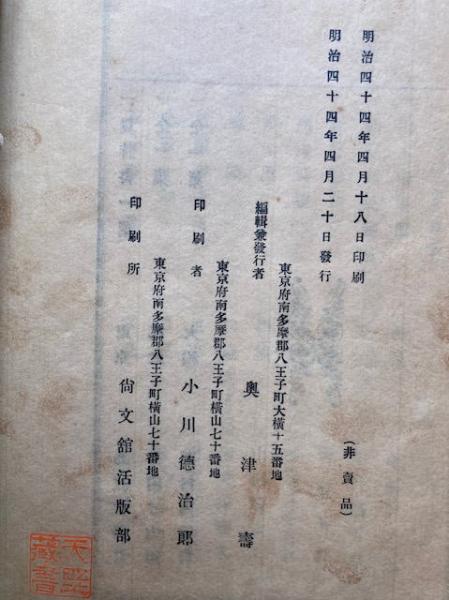 明治四十四年四月十八日印刷
明治四十四年四月二十日發行
(非賣品)
東京府南多摩郡八王子町大橫十五番地
編輯兼發行者 奧津壽
東京府南多摩郡八王子町橫山七十番地
印刷者 小川德治郎
東京府南多摩郡八王子町橫山七十番地
印刷所 尙文舘活版部
藏書